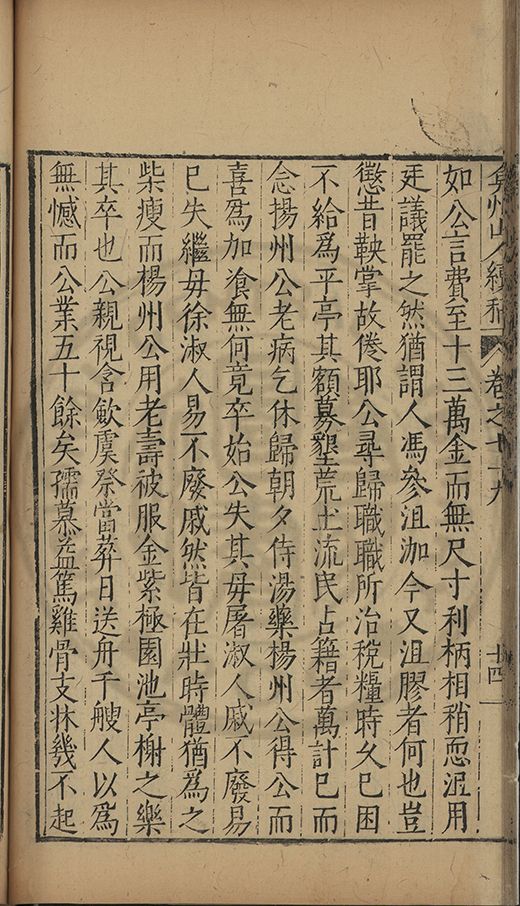 弇州山人續稿 卷之七十九 十四
如公言費至十三萬金而無尺寸利柄相稍恧涊用
廷議罷之然猶謂人馮參沮泇今又沮膠者何也豈
懲昔鞅掌故倦耶公尋歸職職所治稅糧時久已困
不給爲平亭其額募墾荒土流民占籍者萬計已而
念揚州公老病乞休歸朝夕侍湯藥楊州公得公而
喜爲加飡無何竟卒始公失其毋屠淑人戚不廢易
已失繼毋徐淑人易不廢戚然皆在壯時體猶爲之
柴瘦而楊州公用老壽被服金紫極園池亭榭之樂
其卒也公親視含歛虞祭當葬日送舟千艘人以爲
無憾而公業五十餘矣孺慕益篤雞骨支牀幾不起